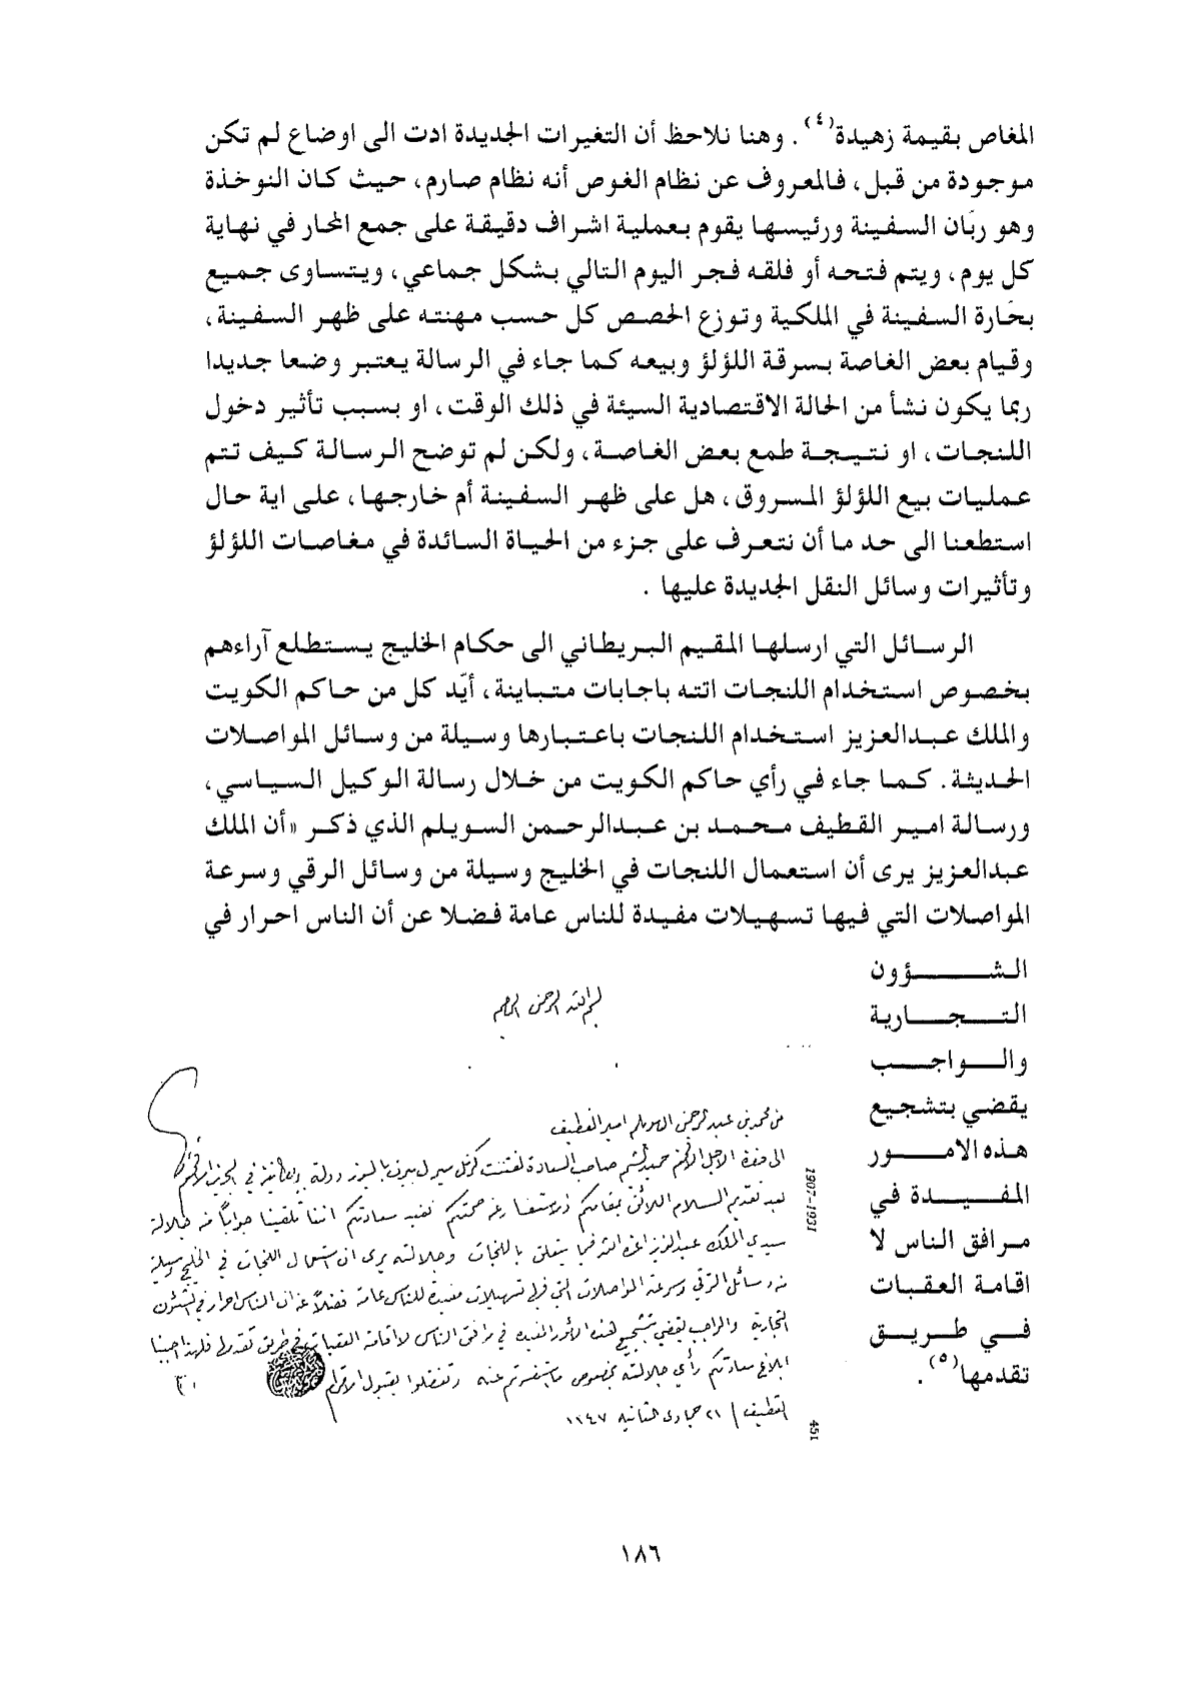 المغاص بقيمة زهيدة(٤) . وهنا نلاحظ أن التغيرات الجديدة ادت الى اوضاع لم تكن
موجودة من قبل، فالمعروف عن نظام الغوص أنه نظام صارم، حيث كان النوخذة
وهو ربّان السفينة ورئيسها يقوم بعملية اشراف دقيقة على جمع المحار في نهاية
كل يوم، ويتم فتحه أو فلقه فجر اليوم التالي بشكل جماعي، ويتساوى جميع
بحّارة السفينة في الملكية وتوزع الحصص كل حسب مهنته على ظهر السفينة،
وقيام بعض الغاصة بسرقة اللؤلؤ وبيعه كما جاء في الرسالة يعتبر وضعا جديدا
ربما يكون نشأ من الحالة الاقتصادية السيئة في ذلك الوقت، او بسبب تأثير دخول
اللنجات، او نتيجة طمع بعض الغاصة، ولكن لم توضح الرسالة كيف تتم
عمليات بيع اللؤلؤ المسروق، هل على ظهر السفينة أم خارجها، على اية حال
استطعنا الى حد ما أن نتعرف على جزء من الحياة السائدة في مغاصات اللؤلؤ
وتأثيرات وسائل النقل الجديدة عليها .
الرسائل التي ارسلها المقيم البريطاني الى حكام الخليج يستطلع آراءهم
بخصوص استخدام اللنجات اتته باجابات متباينة، أيّد كل من حاكم الكويت
والملك عبدالعزيز استخدام اللنجات باعتبارها وسيلة من وسائل المواصلات
الحديثة. كما جاء في رأي حاكم الكويت من خلال رسالة الوكيل السياسي،
ورسالة امير القطيف محمد بن عبدالرحمن السويلم الذي ذكر «أن الملك
عبدالعزيز يرى أن استعمال اللنجات في الخليج وسيلة من وسائل الرقي وسرعة
المواصلات التي فيها تسهيلات مفيدة للناس عامة فضلا عن أن الناس احرار في
الشؤون
التجارية
والواجب
يقضي بتشجيع
هذه الامور
المفيدة في
مرافق الناس لا
اقامة العقبات
في طريق
تقدمها(٥) .
بسم الله الرحمن الرحيم
من محمد بن عبد الرحمن السويلم امير القطيف
الى حضرة الاجل الافخم حميد الشيم صاحب السعادة لفتننت كرنل سيرل بيرث باليوز دولة بريطانية في الخليج الافخم
بعد تقديم السلام اللائق بمقامكم والاستفسار عن صحتكم نفيد سعادتكم اننا تلقينا جواباً من جلالة
سيدي الملك عبد العزيز اعزه الله فيما يتعلق باللنجات وجلالته يرى ان استعمال اللنجات في الخليج وسيلة
من وسائل الترقي وسرعة المواصلات التي فيها تسهيلات مفيدة للناس عامة فضلاً عن ان الناس احرار في الشئون
التجارية والواجب يقضي بتشجيع هذه الأمور المفيدة في مرافق الناس لا اقامة العقبات في طريق تقدمها فلهذا احببنا
ابلاغ سعادتكم رأي جلالته بخصوص ما استفسرتم عنه وتفضلوا بقبول الاحترام
القطيف / ٢١ جمادى الثانية ١٣٤٧
1907-1931
451
١٨٦